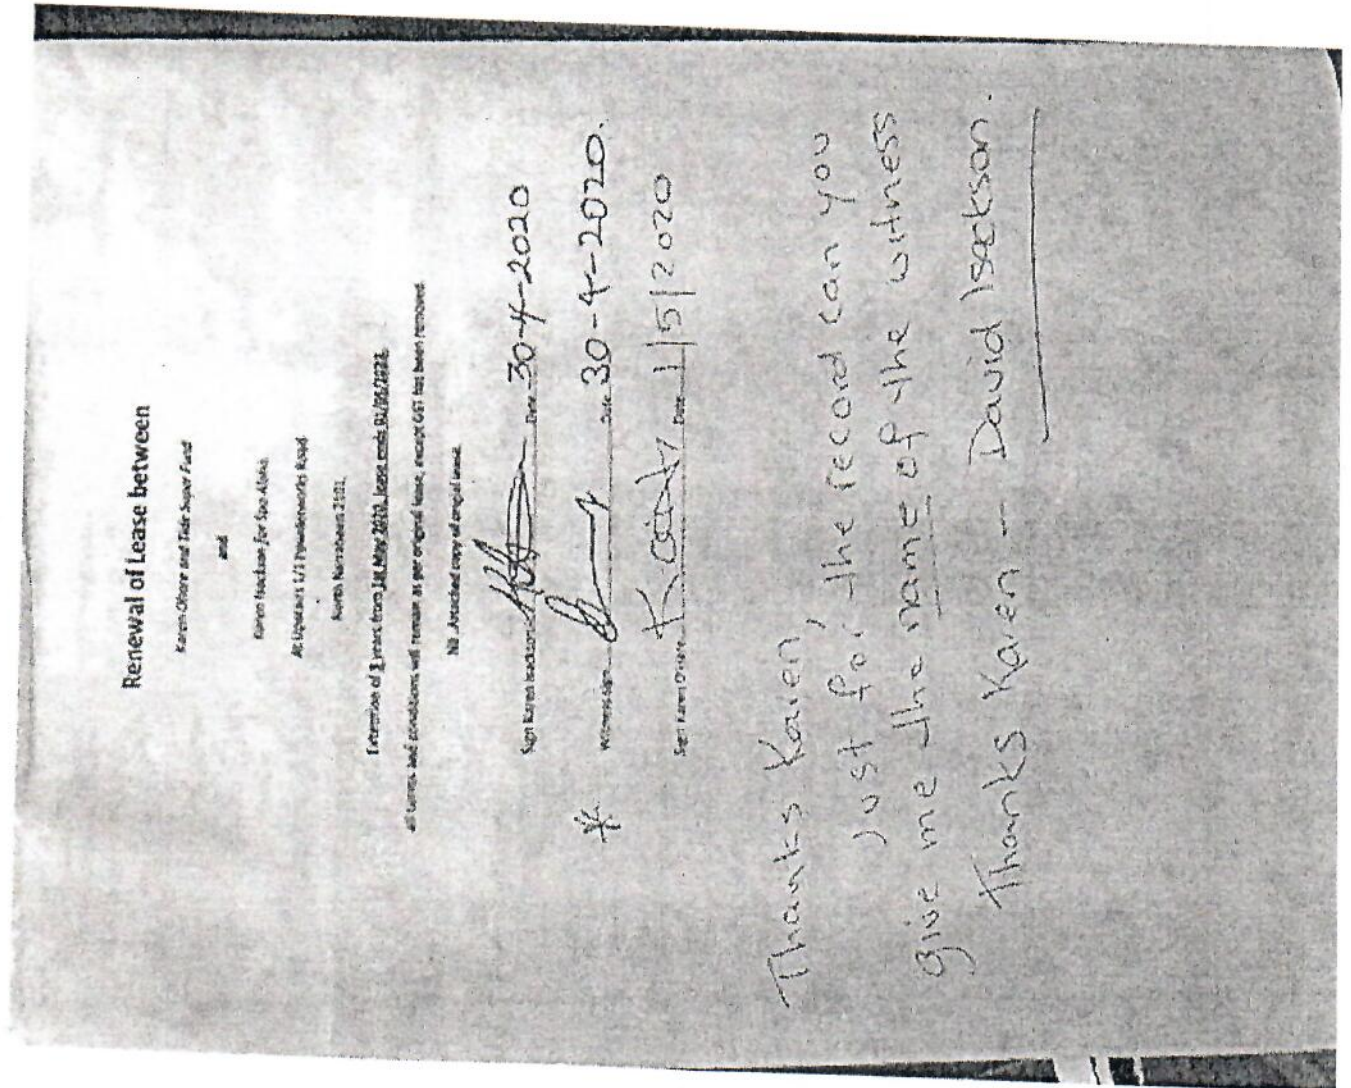 Renewal of Lease between
Karen and Super Fund
and
Karen Isackson for Spa Aloka.
At Upstairs 1/1 Powderworks Road
North Narrabeen 2101.
Extention of 3 years from 1st May 2020, lease ends
all terms and conditions will remain as per original lease, except GST has been removed.
Nb. Attached copy of lease.
Sign Karen Isackson Date 30-4-2020
* Witness sign Date 30-4-2020.
Sign Karen Date 1/5/2020
Thanks Karen,
Just for the record can you
give me the name of the witness
Thanks Karen -- David Isackson.